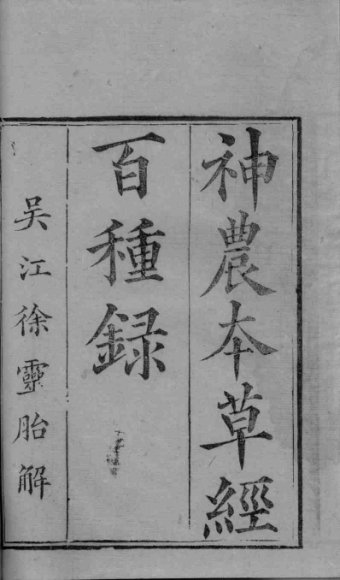 神農本草經
百種録
吳江徐靈胎解